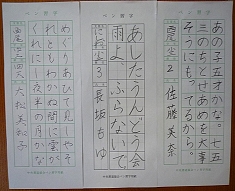 ペン習字
あの子五才かな。七五
三のちとせあめを大事
そうにもってるから。
佐藤美奈
ペン習字
あしたうんどう会
雨よふらないで
3 長坂もゆ
ペン習字
めぐりあひて見しやそ
れともわかぬ間に雲が
くれにし夜半の月かな
西尾 大松美和子